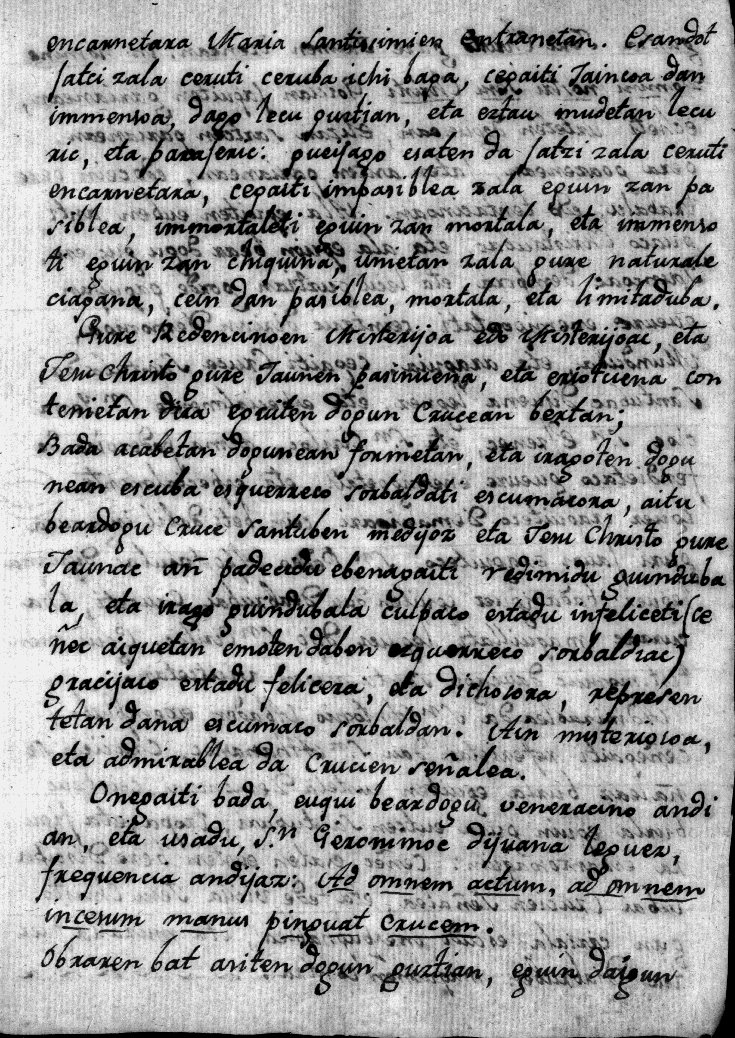 encarnetara Maria Santissimien entranetan. Esandot
jatci zala ceruti ceruba ichi baga, cegaiti Taincoa dan
immensoa, dago lecu guztian, eta eztau mudetan lecu
ric, eta paraseric: gueisago esaten da jatzi zala ceruti
encarnetara, cegaiti impasiblea zala eguin zan pa
siblea, immortaleti eguin zan mortala, eta immenso
ti eguin zan chiquina, umetan zala gure naturale
ciagana, cein dan pasiblea, mortala, eta limitaduba.
Gure Redencinoen Misterijoa edo Misterijoac, eta
Jesu Christo gure Jaunen pasinuena, eta eriotciena con
tenietan dira eguiten dogun Crucean bertan;
Bada acabetan dogunean formetan, eta iragoten dogu
nean escuba esquerreco sorbaldati escumacora, aitu
beardogu Cruce Santuben medijoz eta Jesu Christo gure
Jaunac añ padecidu ebenagaiti redimidu guinduba
la, eta irago guindubala culpaco estadu infeliceti (ce
ñec aiquetan emoten daben ezquerreco sorbaldiac)
gracijaco estadu felicera, eta dichosora, represen
tetan dana escumaco sorbaldan. Ain misteriosoa,
eta admirablea da Crucien señalea.
Onegaiti bada, euqui beardogu veneracino andi
an, eta usadu, S.n Geronimoc dijuana leguez,
frequencia andijaz: Ad omnem actum, ad omnem
incesum manus pinguat Crucem.
Obraren bat asiten dogun guztian, eguin daigun